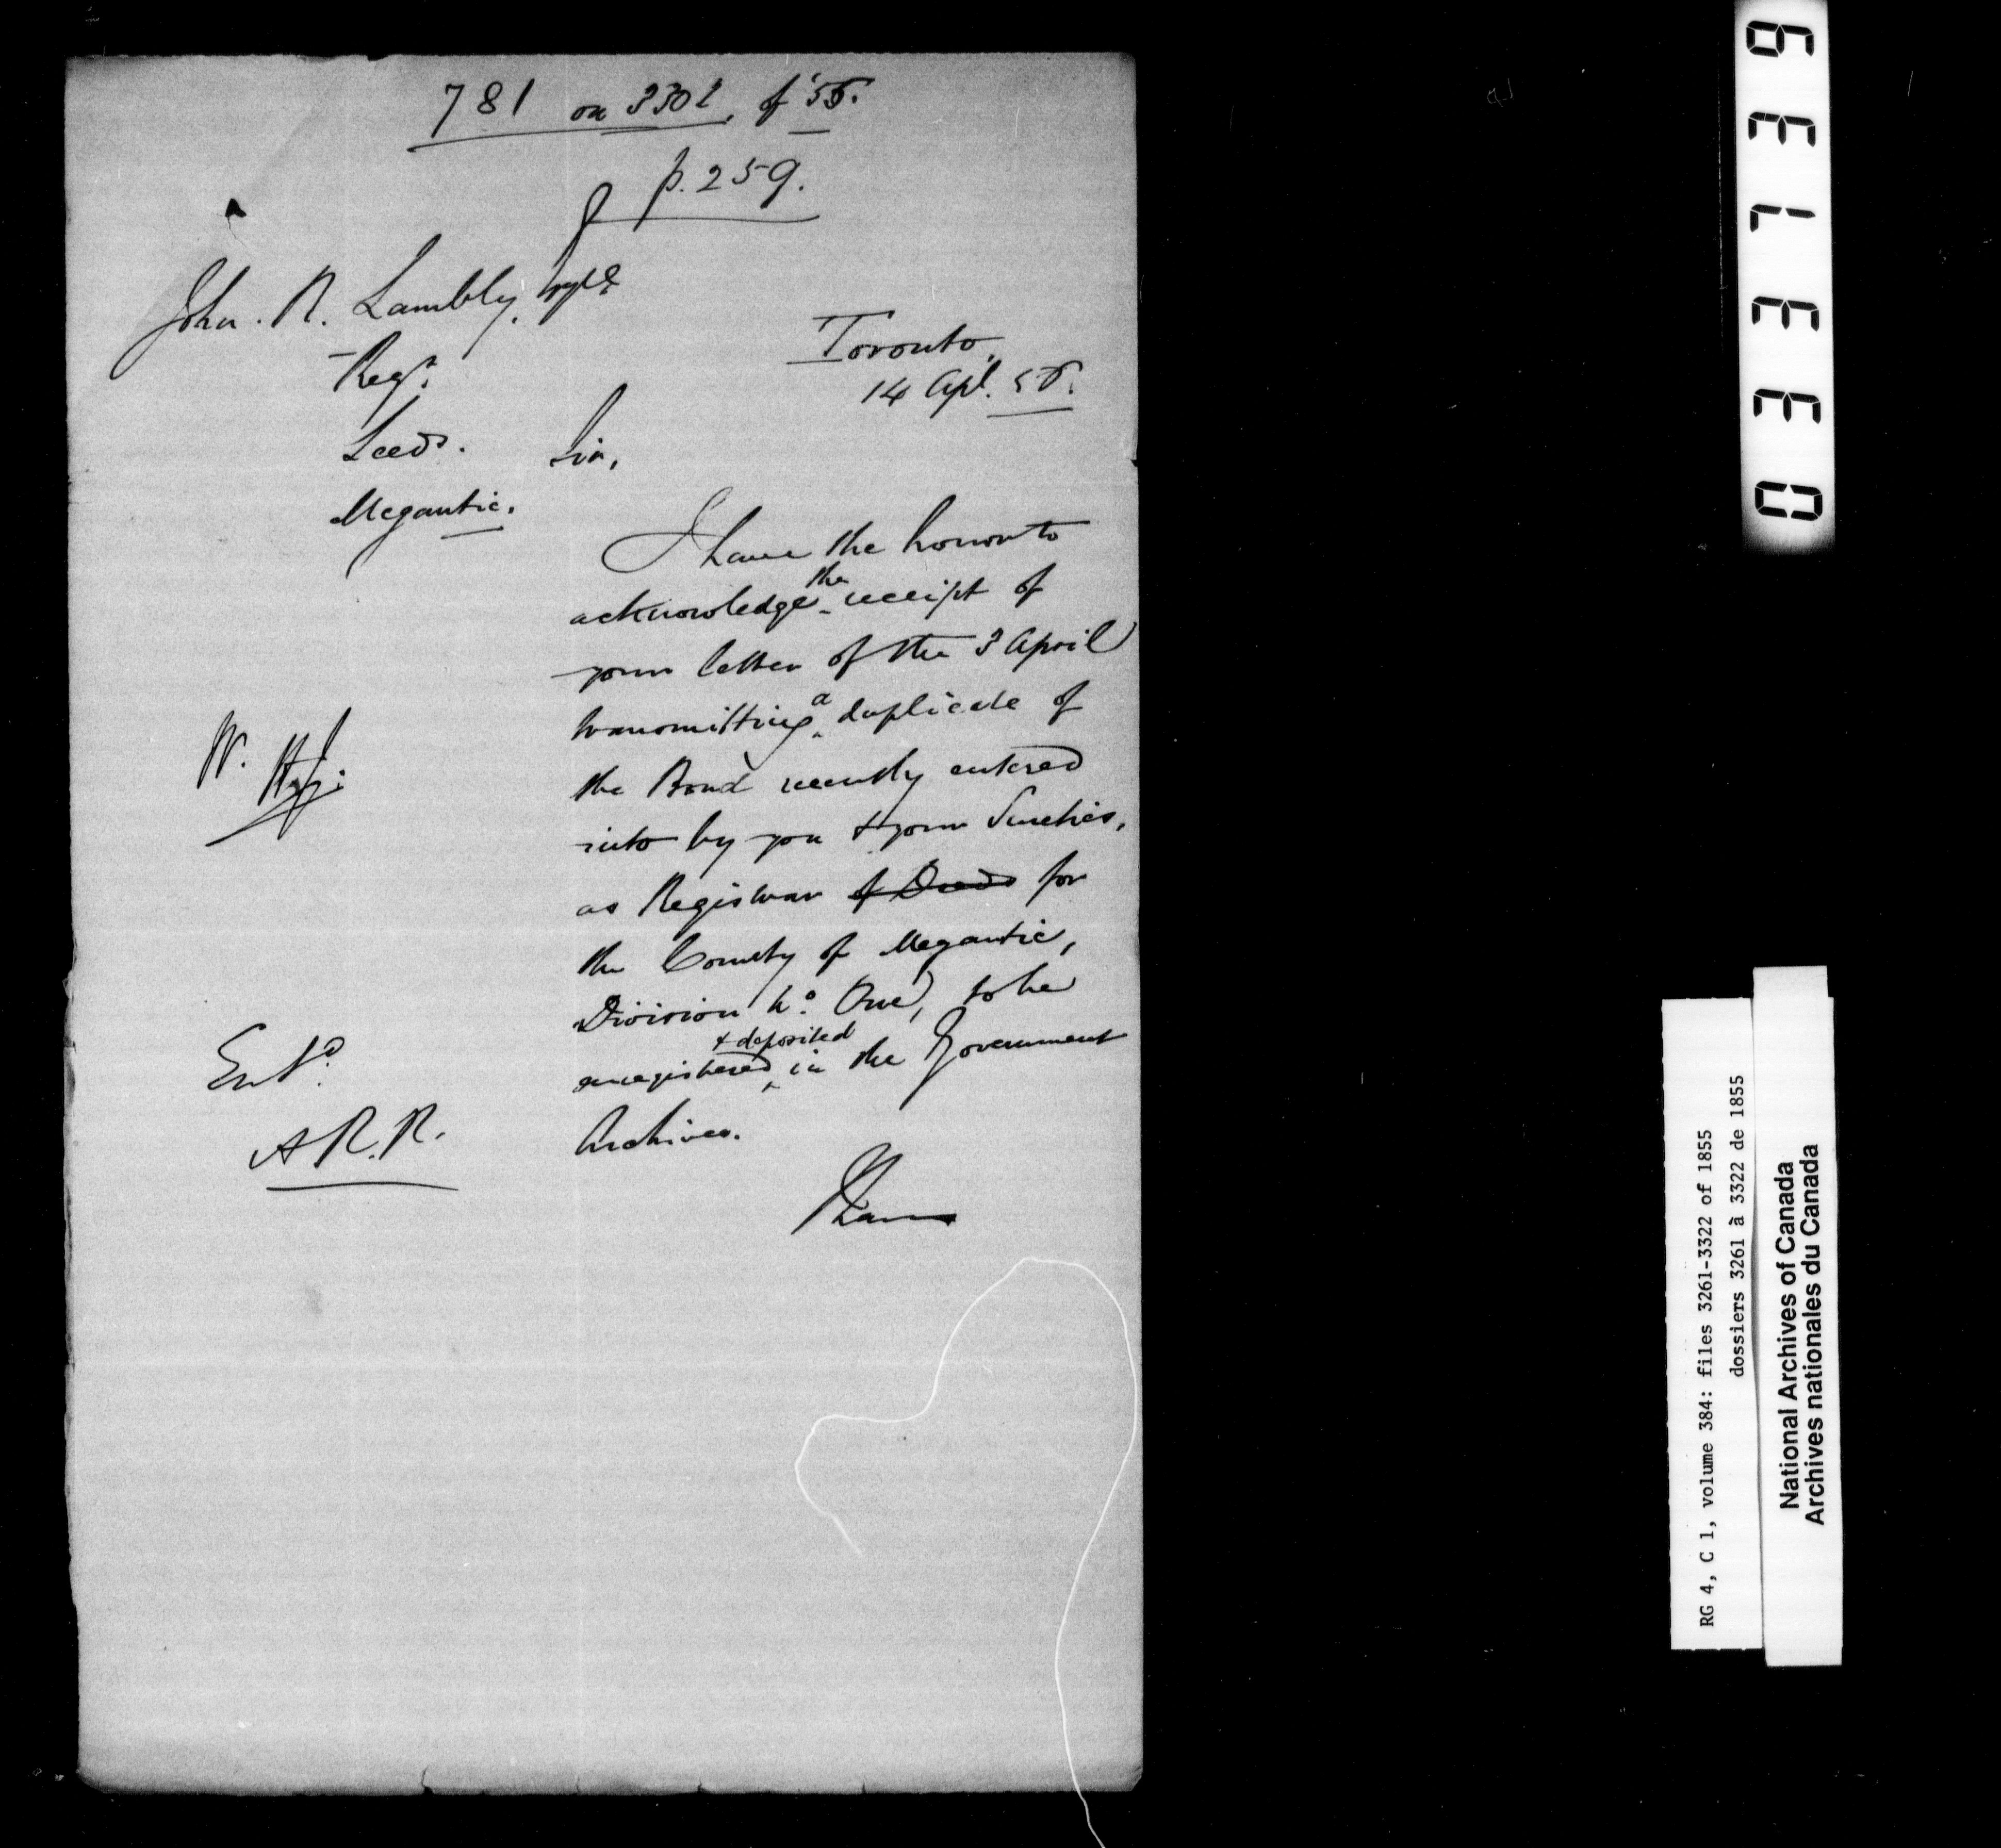 781 on 3302, of '55.
p. 259.
John. R. Lambly,
Regr.
Leeds.
Megantic.
Toronto,
14 Apl. 56.
Sir,
I have the honor to
acknowledge the receipt of
your letter of the 3 April
transmitting a duplicate of
the Bond recently entered
into by you & your Sureties,
as Registrar of Deeds for
the County of Megantic,
Division No. One, to be
enregistered & deposited in the Government
Archives.
W.
Entd.
A R. R.
03 3139
RG 4, C 1, volume 384: files 3261-3322 of 1855
dossiers 3261 à 3322 de 1855
National Archives of Canada
Archives nationales du Canada